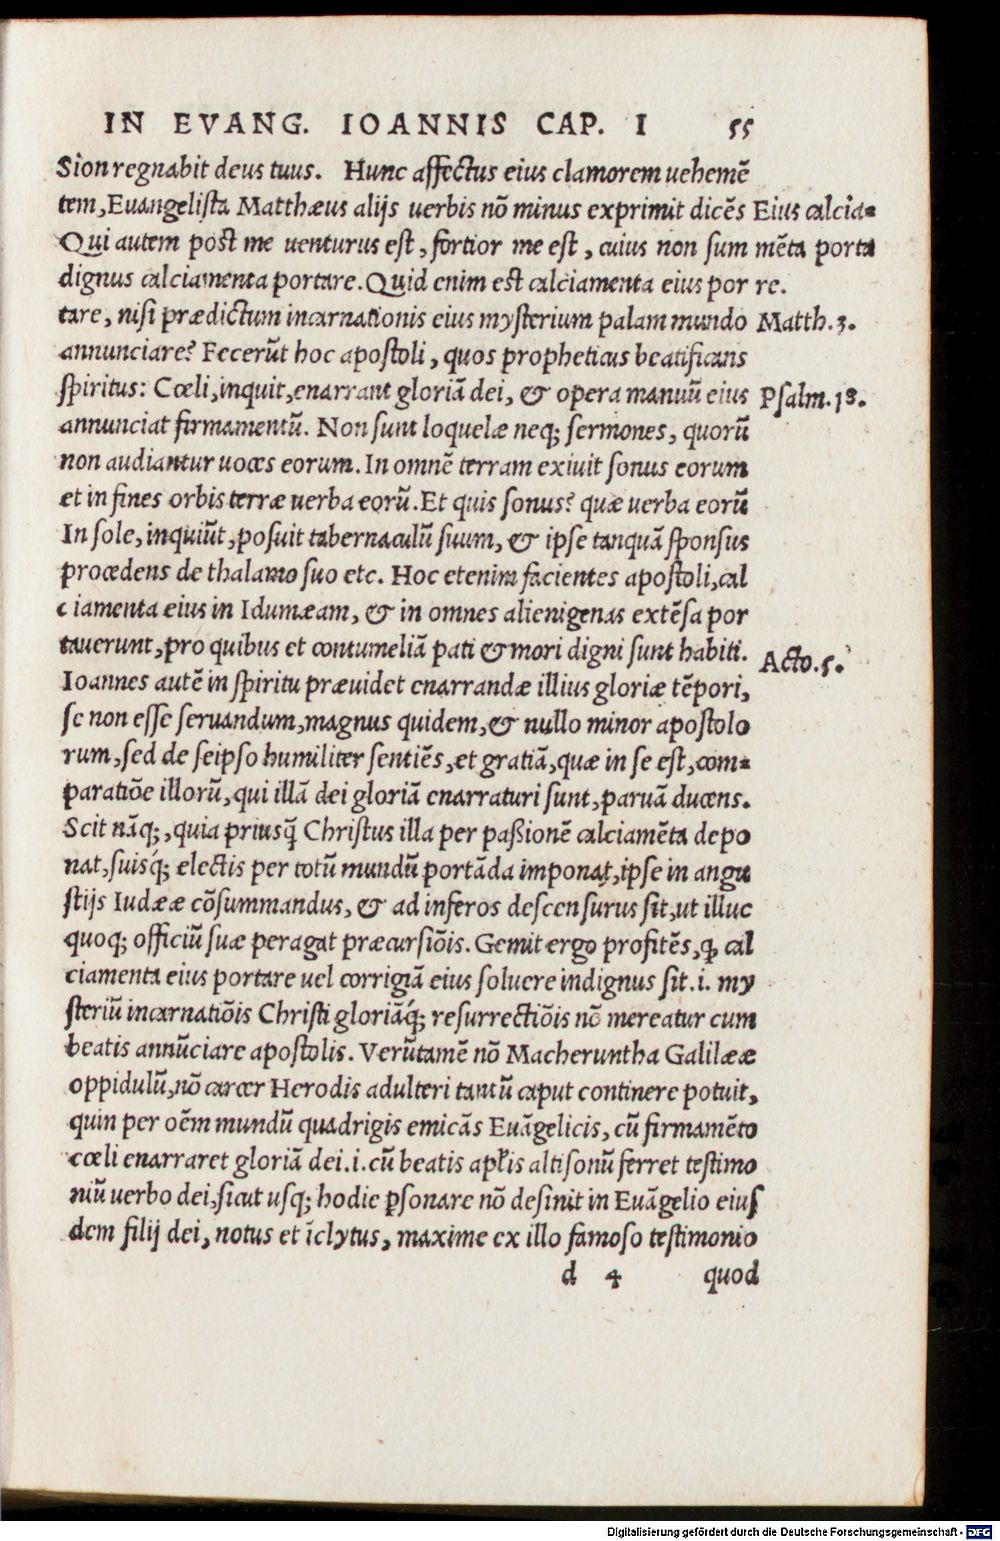 IN EVANG. IOANNIS CAP. I 55
Sion regnabit deus tuus. Hunc affectus eius clamorem uehemē
tem, Euangelista Matthæus alijs uerbis nō minus exprimit dicēs
Qui autem post me uenturus est, fortior me est, cuius non sum
dignus calciamenta portare. Quid enim est calciamenta eius por
tare, nisi prædictum incarnationis eius mysterium palam mundo
annunciare? Fecerūt hoc apostoli, quos propheticus beatificans
spiritus: Cœli, inquit, enarrant gloriā dei, & opera manuū eius
annunciat firmamentū. Non sunt loquelæ neq; sermones, quorū
non audiantur uoces eorum. In omnē terram exiuit sonus eorum
et in fines orbis terræ uerba eorū. Et quis sonus? quæ uerba eorū
In sole, inquiūt, posuit tabernaculū suum, & ipse tanquā sponsus
procedens de thalamo suo etc. Hoc etenim facientes apostoli, cal
ciamenta eius in Idumæam, & in omnes alienigenas extēsa por
tauerunt, pro quibus et contumeliā pati & mori digni sunt habiti.
Ioannes autē in spiritu præuidet enarrandæ illius gloriæ tēpori,
se non esse seruandum, magnus quidem, & nullo minor apostolo
rum, sed de seipso humiliter sentiēs, et gratiā, quæ in se est, com-
paratiōe illorū, qui illā dei gloriā enarraturi sunt, paruā ducens.
Scit nāq;, quia priusq̄ Christus illa per paßionē calciamēta depo
nat, suisq́; electis per totū mundū portāda imponat, ipse in angu
stijs Iudææ cōsummandus, & ad inferos descensurus sit, ut illuc
quoq; officiū suæ peragat præcursiōis. Gemit ergo profitēs, ꝙ cal
ciamenta eius portare uel corrigiā eius soluere indignus sit .i. my
steriū incarnatiōis Christi gloriāq́; resurrectiōis nō mereatur cum
beatis annūciare apostolis. Verūtamē nō Macheruntha Galilææ
oppidulū, nō carcer Herodis adulteri tantū caput continere potuit,
quin per oēm mundū quadrigis emicās Euāgelicis, cū firmamēto
cœli enarraret gloriā dei .i. cū beatis apl̄is altisonū ferret testimo
niū uerbo dei, sicut usq; hodie ꝑsonare nō desinit in Euāgelio eius
dem filij dei, notus et īclytus, maxime ex illo famoso testimonio
d 4 quod
Eius calcia-
mēta porta
re.
Matth. 3.
Psalm. 18.
Acto. 5.
Digitalisierung gefördert durch die Deutsche Forschungsgemeinschaft - DFG